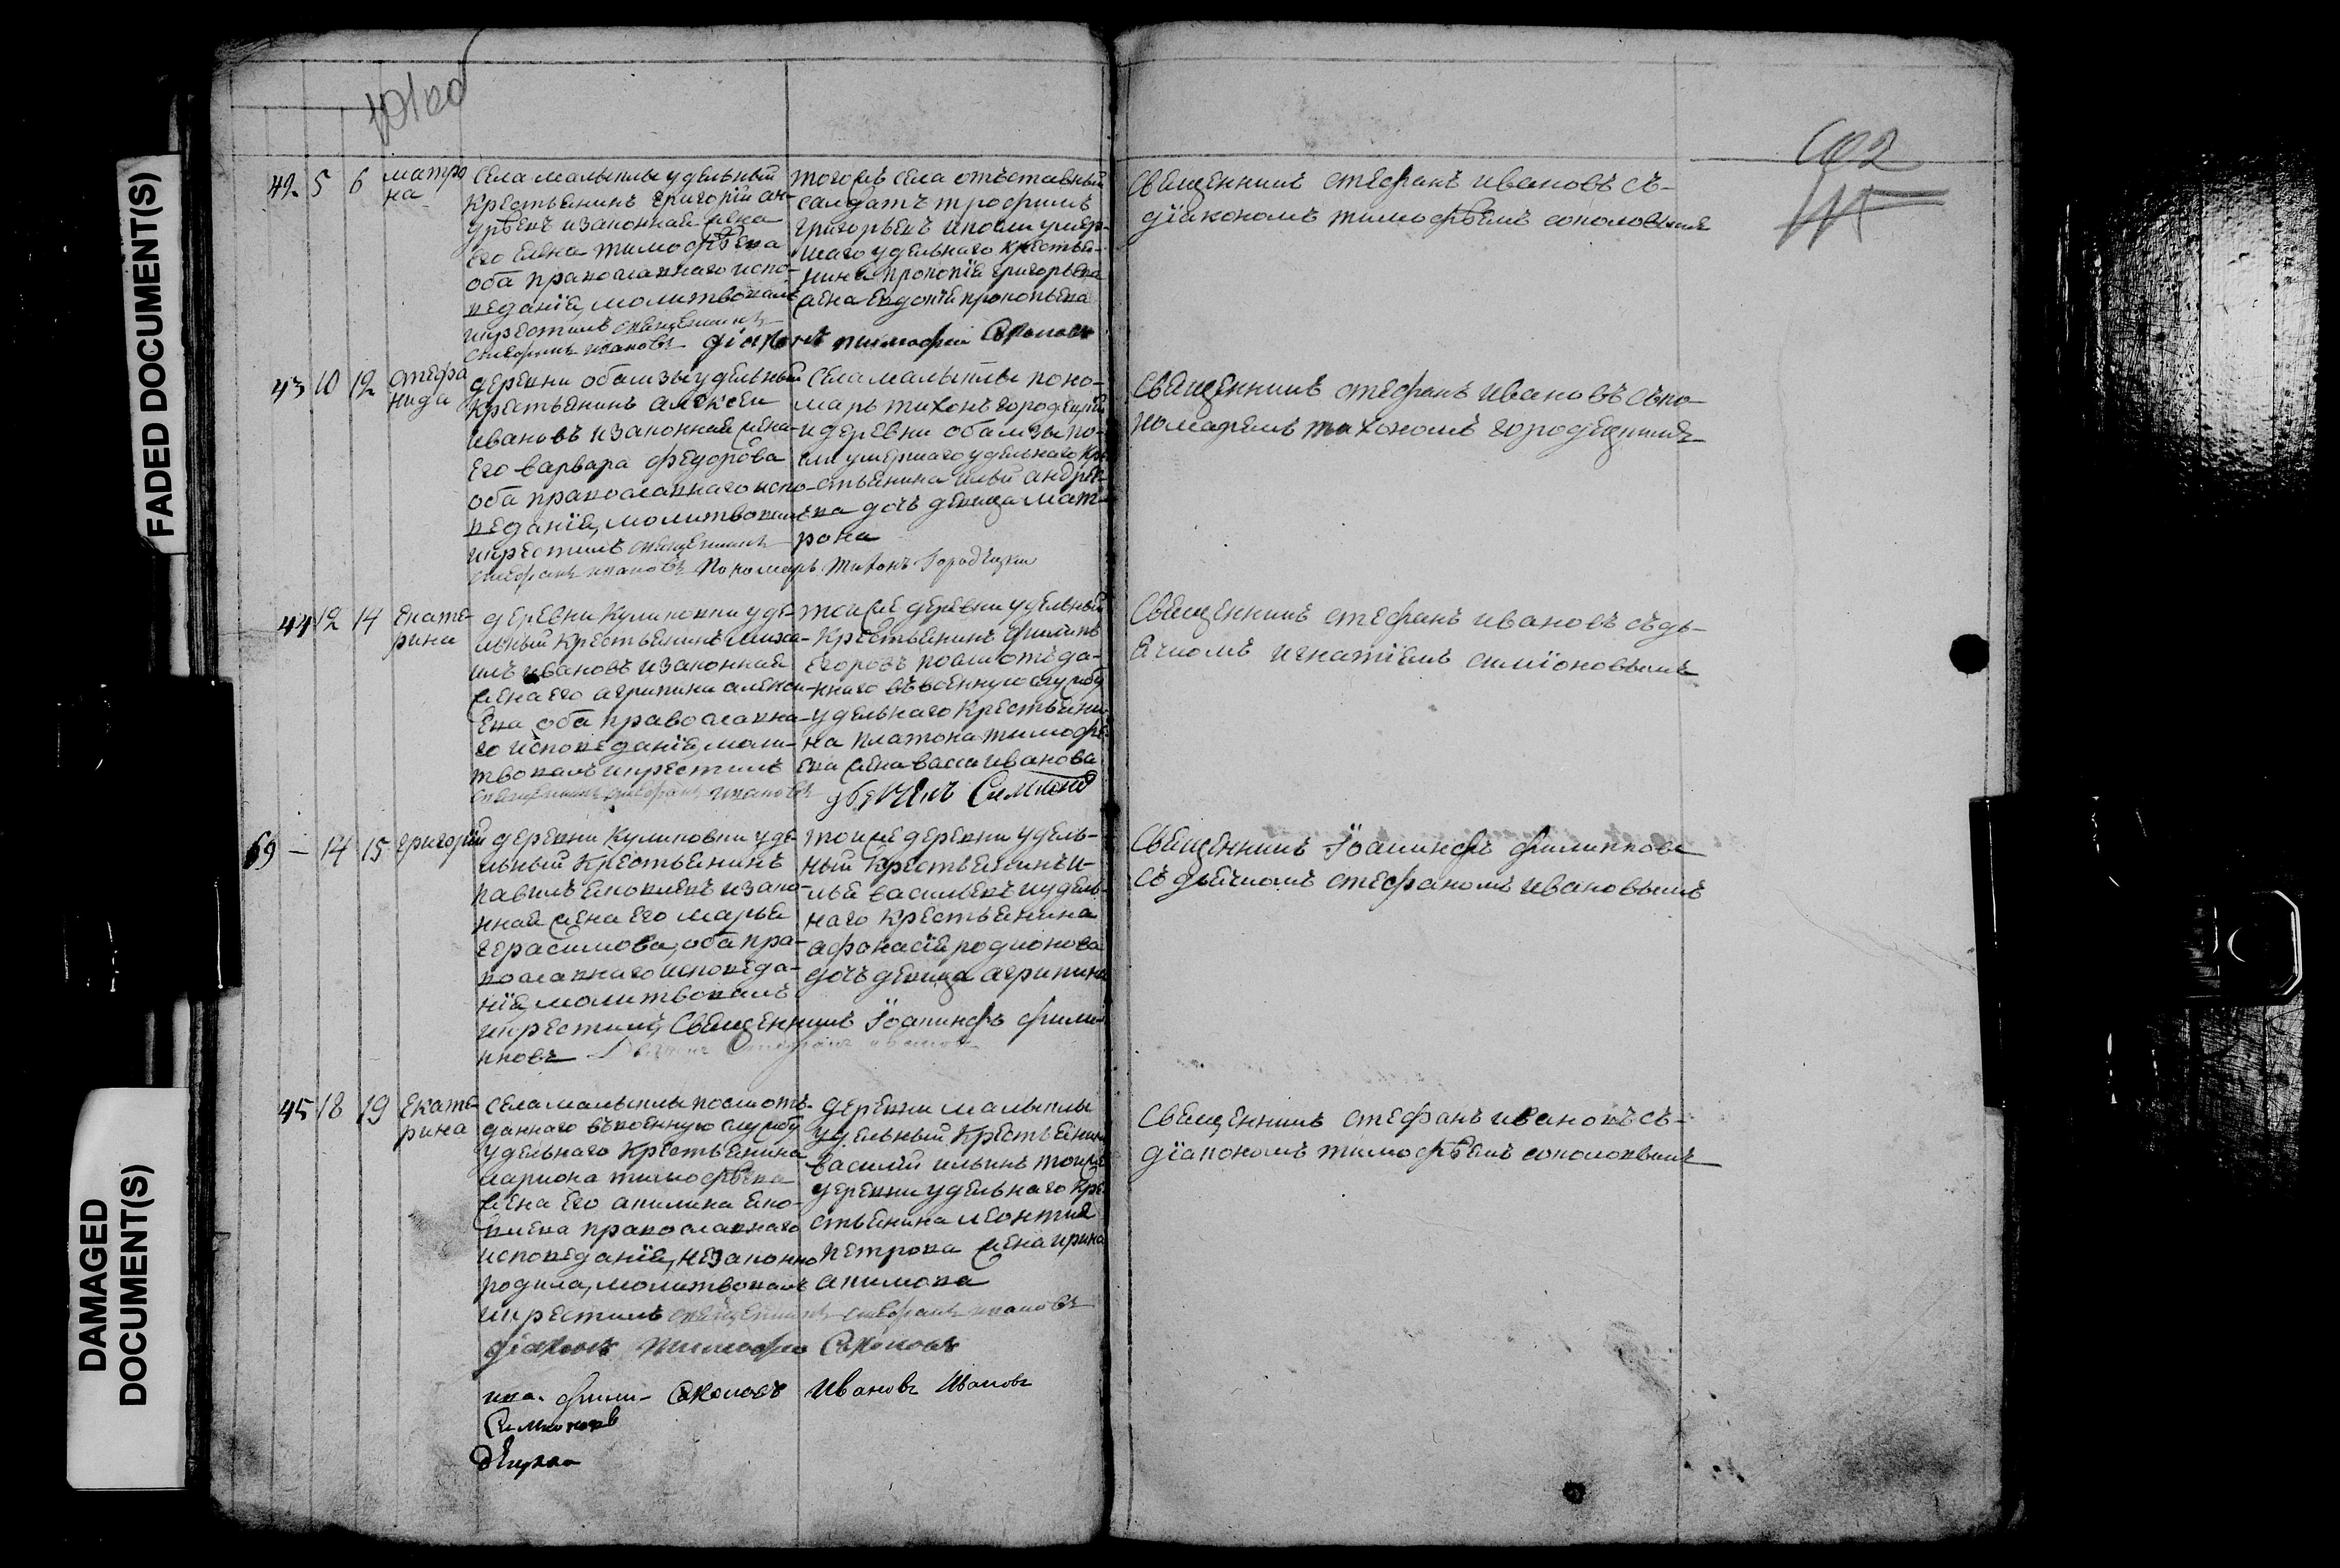 FADED DOCUMENT(S)
DAMAGED
DOCUMENT(S)
42 5 6 матро
на
села малыклы удѣльный
крестьянинъ григорій ан-
дрѣевъ и законная жена
его елена тимофѣева
оба православнаго испо-
веданія, молитвовалъ
икрестилъ священникъ
стефанъ ивановъ діаконъ тимофей Соколовъ
тогожъ села отъставный
салдатъ трофимъ
григорьевъ ипосли умер-
шаго удѣльнаго крестья-
нина прокопія григорьева
жена евдокія прокопьева
священникъ стефанъ ивановъ съ-
діакономъ тимофѣемъ соколовымъ
43 10 12 стефа
нида
деревни обамзы удѣльный
крестьянинъ алексеи
ивановъ изаконная жена
его варвара федорова
оба православнаго испо-
веданія, молитвовалъ
икрестилъ священникъ
стефанъ ивановъ Пономарь Тихонъ Городецкии
села малыклы поно-
марь тихонъ городецкій
идеревни обамзы по-
сли умершаго удельнаго кре
стьянина ильи андрее-
ва дочь девица мат-
рона
священникъ стефанъ ивановъ съпо-
номаремъ тихономъ городецкимъ
44 12 14 екате-
рина
деревни Куликовки уде-
льный крестьянинъ миха-
илъ ивановъ изаконная
жена его агрипина алексе-
ева оба православна-
го исповеданія, моли-
твовалъ икрестилъ
священникъ стефанъ ивановъ
тоиже деревни удельный
крестьянинъ филипъ
егоровъ посли отъда-
ннаго въвоенную службу
удельнаго крестьяни
на платона тимофе-
ева жена васса иванова
Симионов
священникъ стефанъ ивановъ съдь-
ячкомъ игнатіемъ симіоновымъ
69 — 14 15 григорій
деревни Куликовки уде-
льный крестьянинъ
павилъ яковлевъ изако-
нная жена его марья
герасимова, оба пра-
вославнаго исповеда-
нія, молитвовалъ
икрестилъ Священникъ Іоакинфъ фили-
пповъ Дьячокъ Стефанъ ивановъ
тоиже деревни удель-
ный крестьянинъ и-
лья васильевъ иудель-
наго крестьянина
афонасія родионова
дочь девица агрипина
Священникъ Іоакинфъ филиппова
съ дьячкомъ стефаномъ ивановымъ
45 18 19 екате-
рина
села малыклы посли отъ-
даннаго въвоенную службу
удельнаго крестьянина
лариона тимофѣева
жена его акилина яко-
влева православнаго
исповеданія, незаконно
родила, молитвовалъ
икрестилъ священникъ стефанъ ивановъ
діаконъ тимофей Соколовъ
деревни малыклы
удельный крестьянинъ
василій ильинъ тоиже
деревни удельнаго кре
стьянина леонтия
петрова жена ирина
акимова
священникъ стефанъ ивановъ съ-
діакономъ тимофѣемъ соколовымъ
ива. фили- Соколовъ Ивановъ Иванов
Симионов